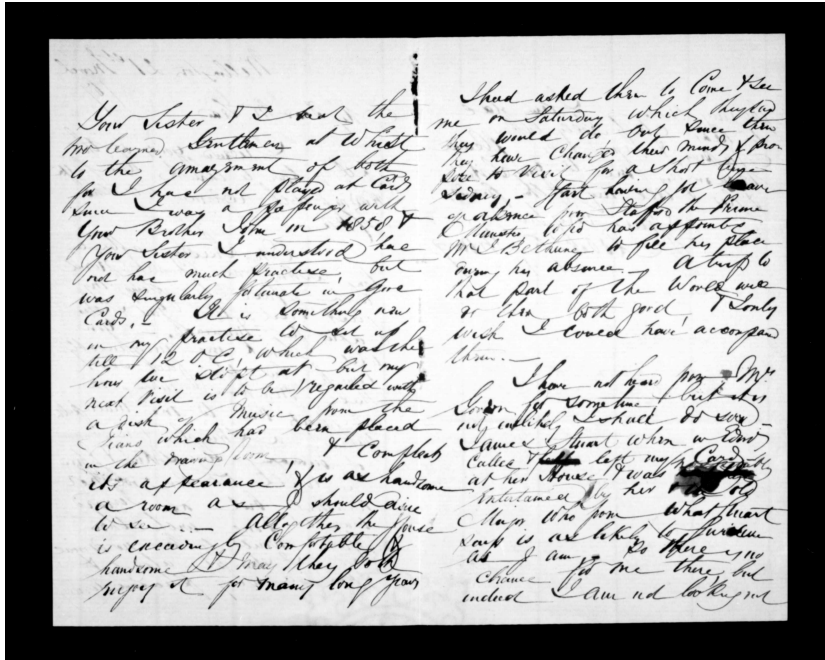 Your Sister & I beat the
two learned Gentlemen at Whist
to the amazement of both
for I has not played at Cards
since I was a Ga with
Your Brother John in 1858 &
Your Sister I understood, has
not has much practise, but
was singularly fortunate in Give
Cards, - It is something new
in my practise to sit up
till 12 O C, which was the
hour we at but my
next visit is to be regaled with
a dish of Music from the
Piano which had been placed
in the drawing room, & Compleats
its appearance, & is as handsome
a room as I should desire
to see - Altogether the House
is exceedingly Comfortable &
handsome & may they both
enjoy it for many long years
I had asked them to Come & see
me on Saturday which
they would do but since then
they have changed their minds & pro
pose to visit for a Short
Sidney, - Stuart having got leave
of absence from Stafford the Prime
Minister who has appointed
Mr J Bethune to fill his place
during his absence - A trip to
that part of the World will
do them both good, & I only
wish I could have accompan
them. -
I have not heard from Mrs
Gordon for sometime but it is
not unlikely I shall do soon -
James Stuart when in Edinr
called & left my Card
at her House & was
entertained by her Old
Major who from what Stuart
says is as likely to Survive
as I am - So there is no
chance for me there but
indeed I am not looking out